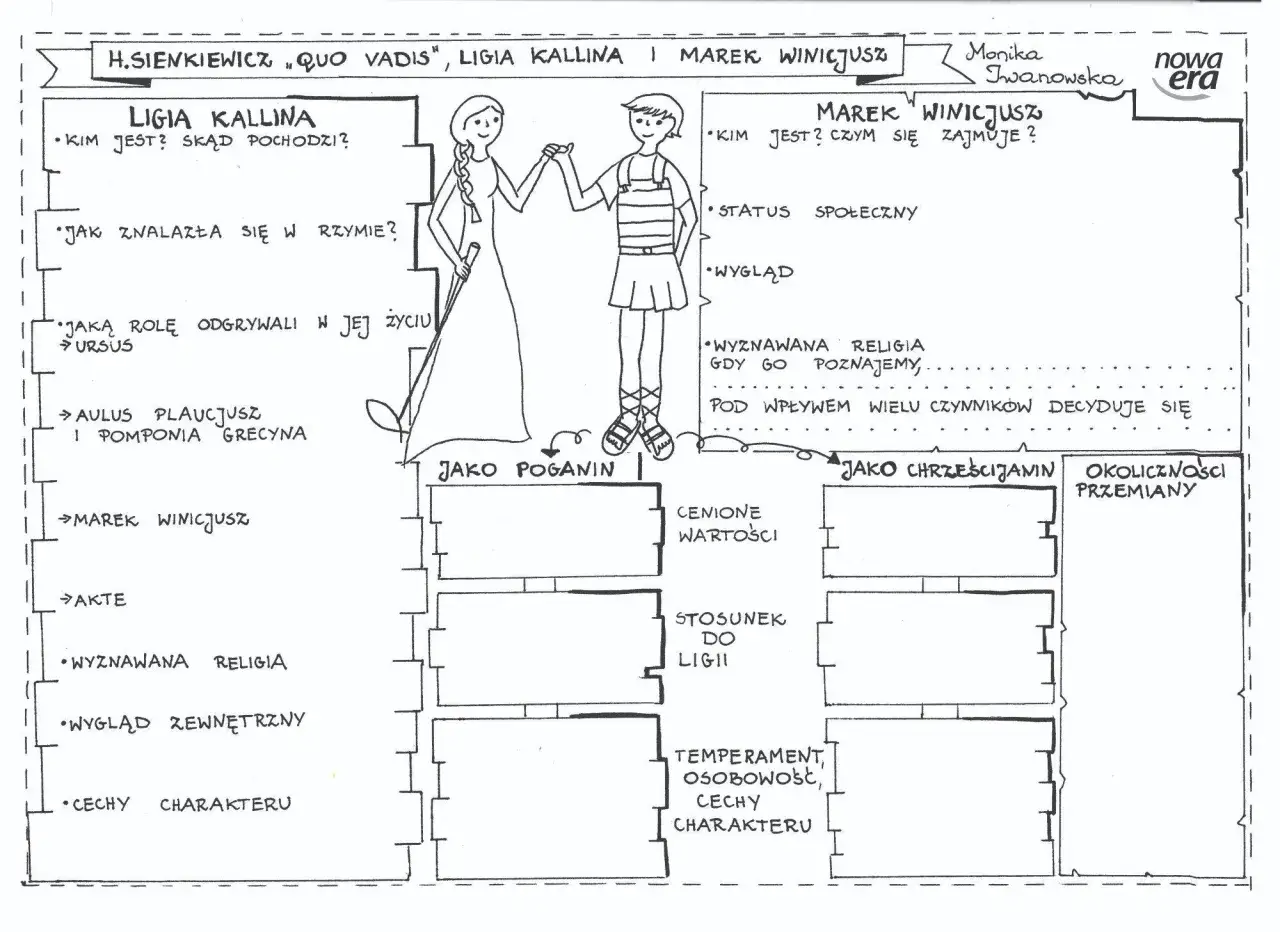 H.SIENKIEWICZ „QUO VADIS", LIGIA KALLINA I MAREK WINICJUSZ
Monika
Iwanowska
nowa
era
LIGIA KALLINA
•KIM JEST? SKĄD POCHODZI?
•JAK ZNALAZŁA SIĘ W RZYMIE?
•JAKĄ ROLĘ ODGRYWALI W JEJ ŻYCIU
→URSUS
→AULUS PLAUCJUSZ
I POMPONIA GRECYNA
→MAREK WINICJUSZ
→AKTE
•WYZNAWANA RELIGIA
•WYGLĄD ZEWNĘTRZNY
•CECHY CHARAKTERU
MAREK WINICJUSZ
•KIM JEST? CZYM SIĘ ZAJMUJE?
•STATUS SPOŁECZNY
•WYGLĄD
•WYZNAWANA RELIGIA
GDY GO POZNAJEMY,
POD WPŁYWEM WIELU CZYNNIKÓW DECYDUJE SIĘ
JAKO POGANIN
JAKO CHRZEŚCIJANIN
CENIONE
WARTOŚCI
STOSUNEK
DO
LIGII
TEMPERAMENT,
OSOBOWOŚĆ,
CECHY
CHARAKTERU
OKOLICZNOŚCI
PRZEMIANY